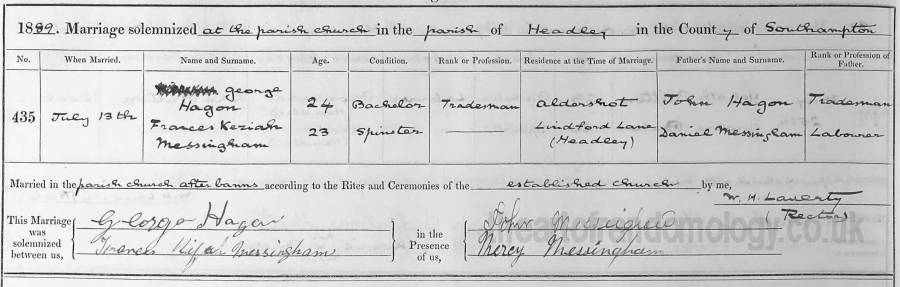 1889. Marriage solemnized at the parish church in the parish of Headley in the County of Southampton
No. When Married. Name and Surname. Age. Condition. Rank or Profession. Residence at the Time of Marriage. Father's Name and Surname. Rank or Profession of Father.
435 July 13th George Hagon 24 Bachelor Tradesman Aldershot John Hagon Tradesman
Frances Keziah Messingham 23 Spinster Lindford Lane (Headley) Daniel Messingham Labourer
Married in the parish church after banns according to the Rites and Ceremonies of the established church by me,
W. H. Laverty
(Rector)
This Marriage was solemnized between us, George Hagon
Frances Messingham
in the Presence of us, John
Mercy Messingham